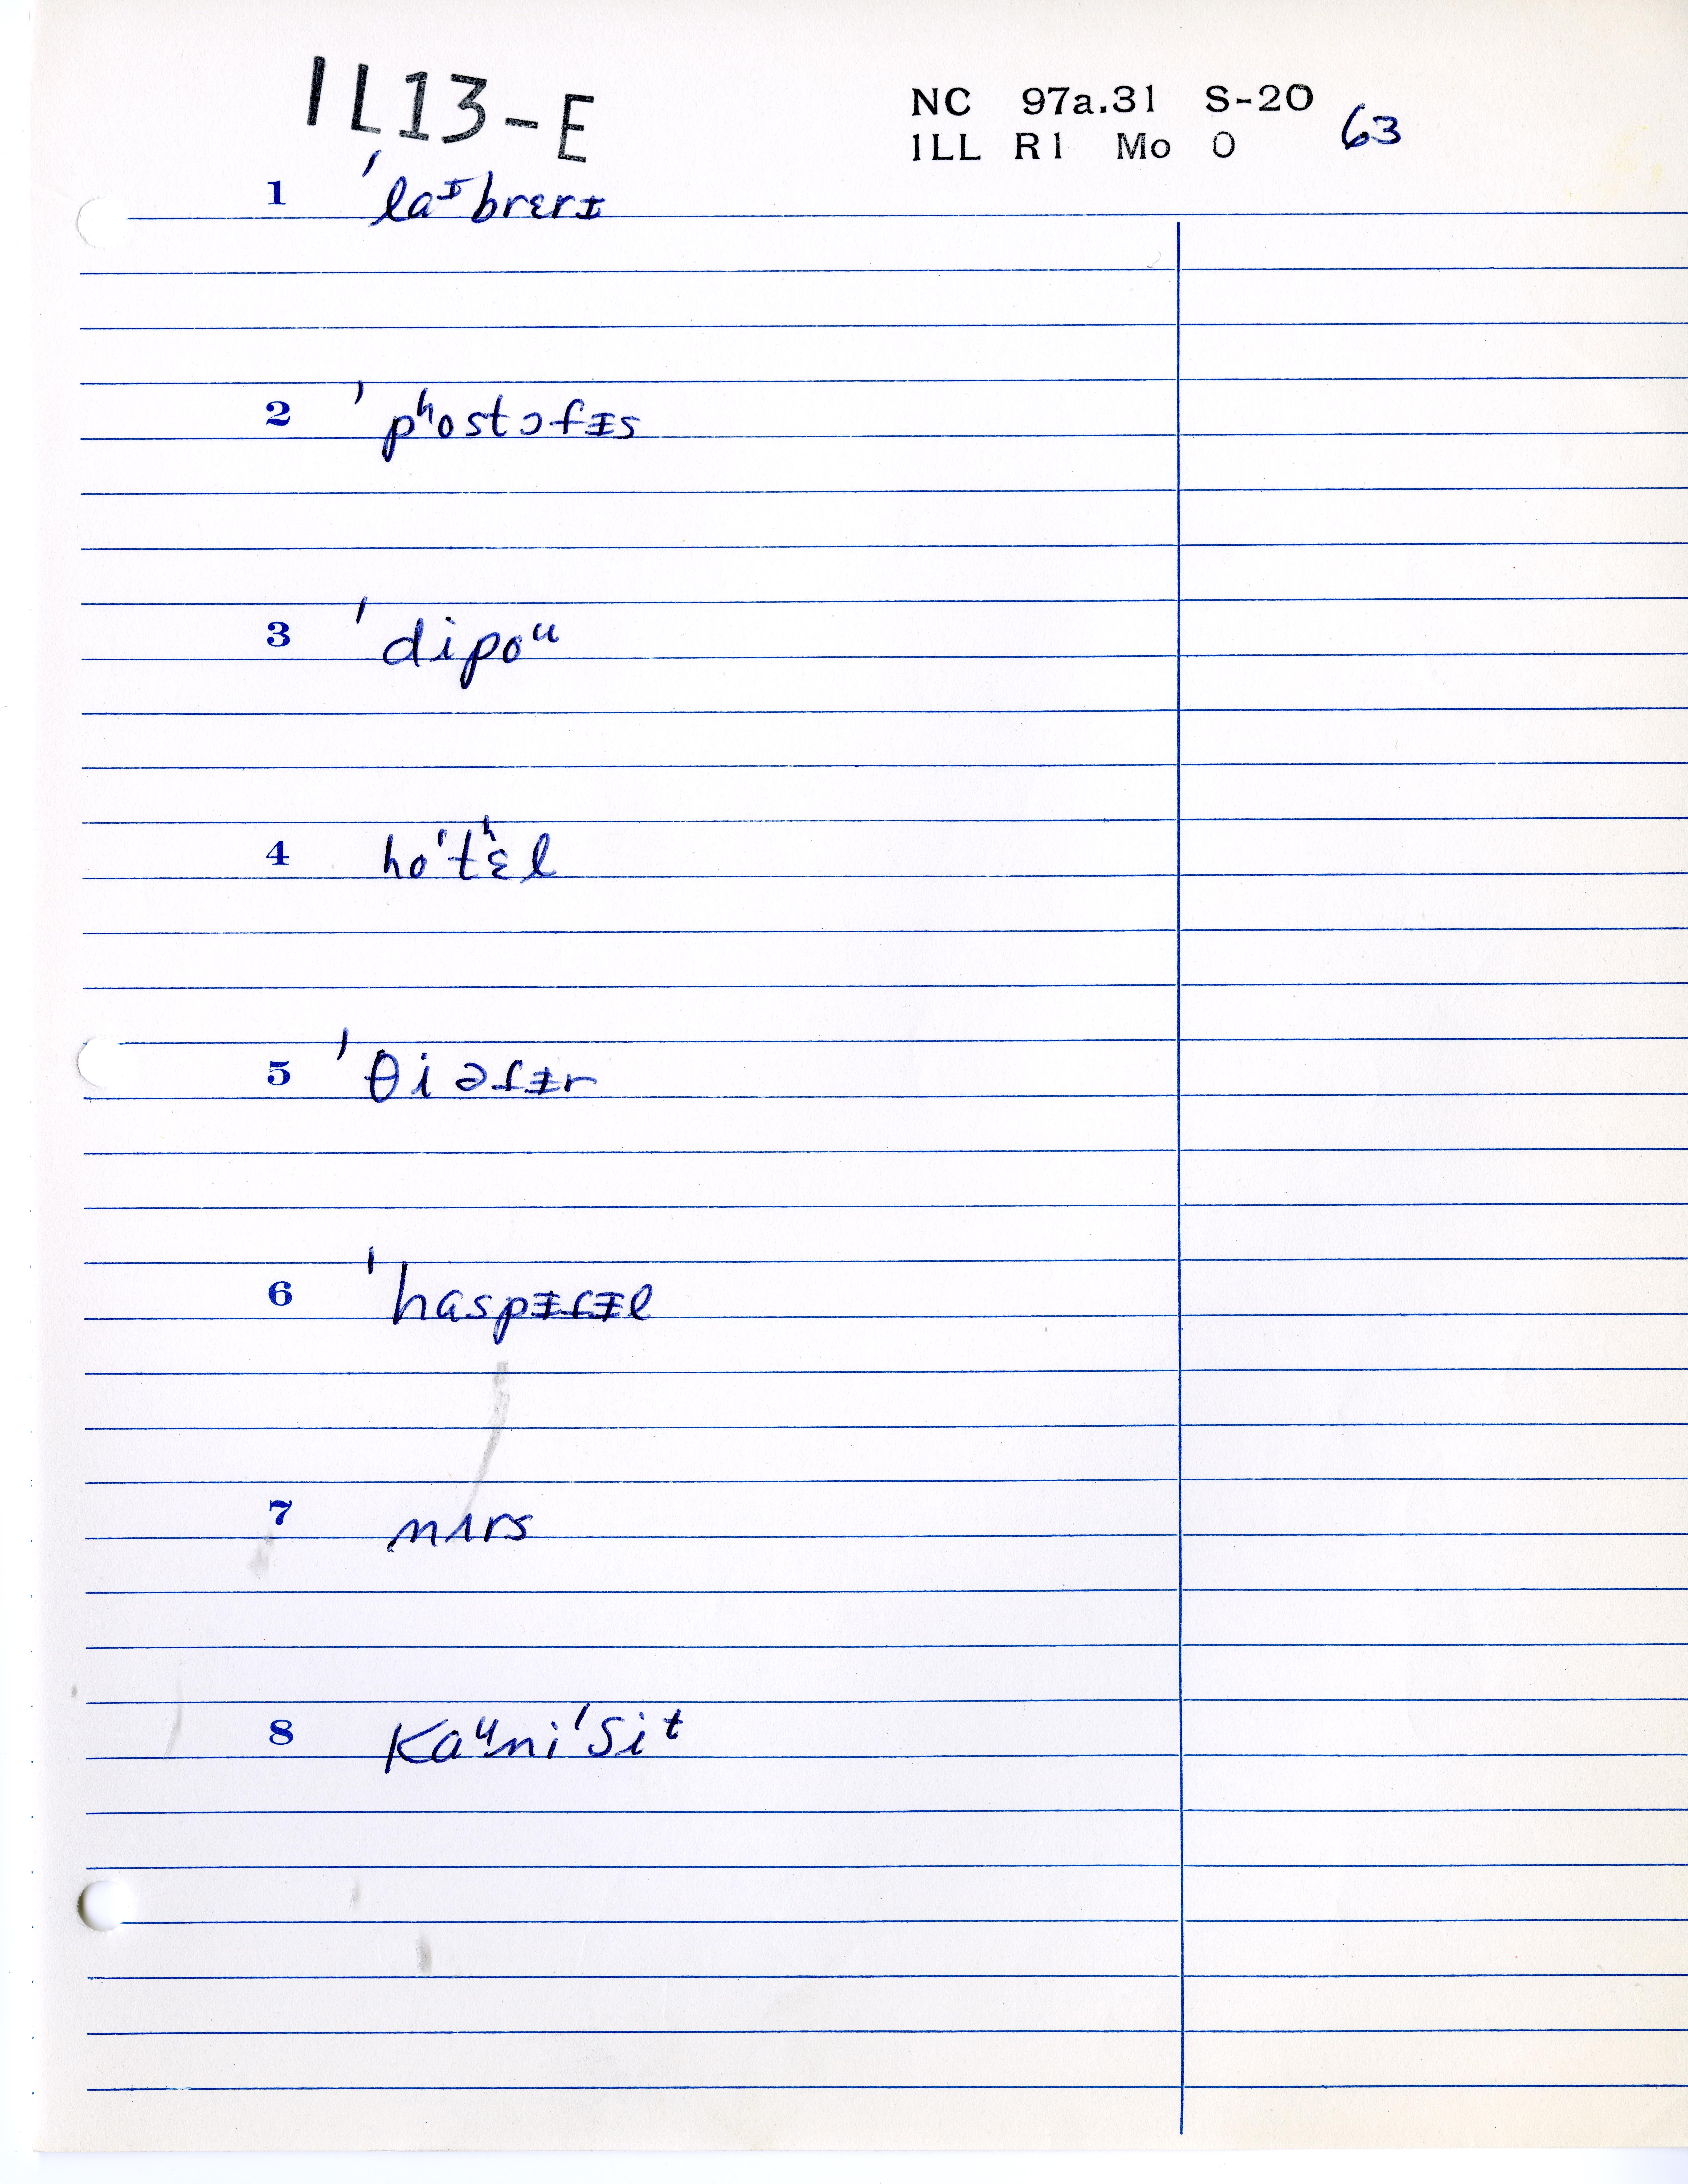 IL13-E
NC 97a.31 S-20 63
ILL R1 Mo O
1 ˈlaᶦbrɛrɪ
2 ˈpʰostɔfɪs
3 ˈdipoᵘ
4 hoˈtʰɛl
5 ˈθiəɾɨr
6 ˈhaspɨɾɨl
7 nʌrs
8 kaᶸniˈsit